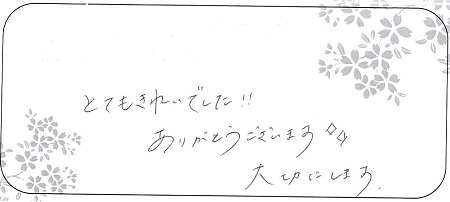 とてもきれいでした!!
ありがとうございます
大切にします.